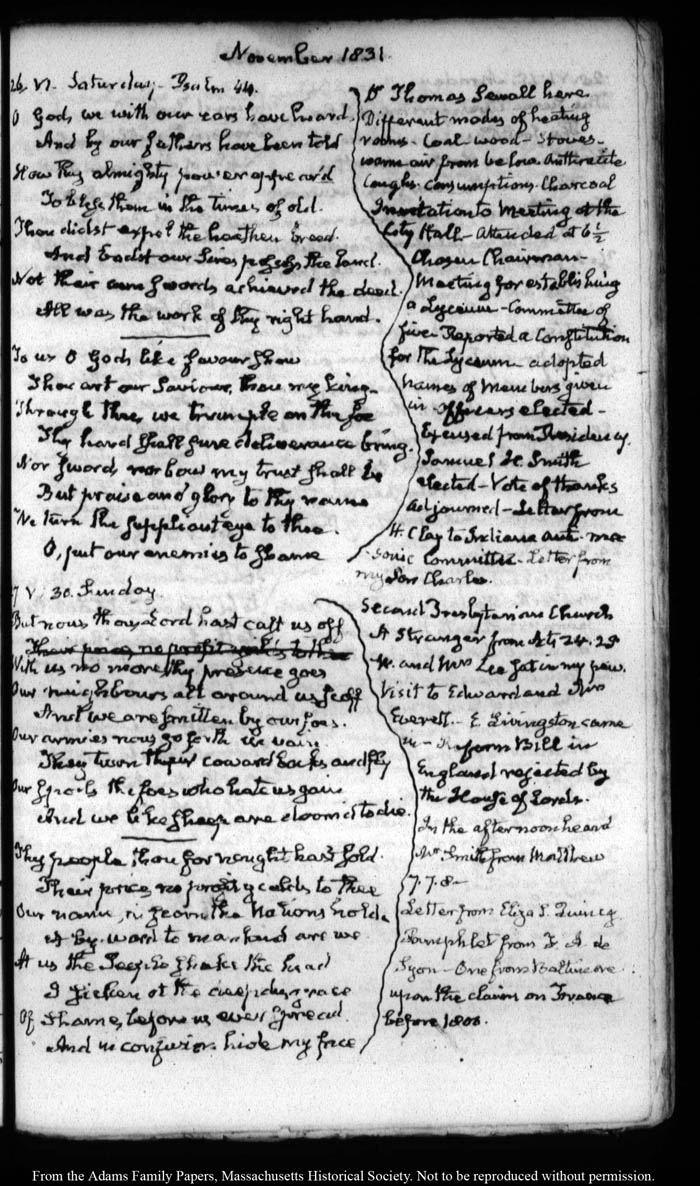 November 1831
26. VI. Saturday - Psalm 44.
O God, we with our ears have heard
And by our fathers have been told
How thy almighty power appear'd
To bless them in the times of old.
Thou didst expel the heathen breed
And badst our Sires possess the land.
Not their own swords achieved the deed.
All was the work of thy right hand.
To us O God like favour show
Thou art our Saviour, thou my King
Through thee, we trample on the foe
Thy hand shall sure deliverance bring.
Nor sword nor bow my trust shall be
But praise and glory to thy name
We turn the suppliant eye to thee.
O, put our enemies to shame
Dr Thomas Sewall here
Different modes of heating
rooms - Coal - wood - Stoves -
warm air from below. Anthracite
Coughs. Consumptions. Charcoal
Invitation to Meeting at the
City Hall - Attended at 6 1/2
Chosen Chairman -
Meeting for establishing
a Lyceum - Committee of
five Reported a Constitution
for the Lyceum adopted
names of Members given
in Officers elected -
Excused from Presidency.
Samuel H. Smith
elected - Vote of thanks
Adjourned - Letter from
H. Clay to Indiana Anti-ma
-sonic Committee - Letter from
my Son Charles.
7 V. 30. Sunday
But now thou Lord hast cast us off
Their price, no profit yields to thee
With us no more thy presence goes
Our neighbours all around us scoff
And we are smitten by our foes.
Our armies now go forth in vain
They turn their coward backs and fly
Our spoils the foes who hate us gain
And we like sheep are doom'd to die.
Thy people thou for nought hast sold.
Their price, no profit yields to thee
Our name, in scorn the Nations hold
A By-word to mankind are we
At us the People shake the head
I sicken at the deep disgrace
Of Shame, before us ever spread
And in confusion hide my face
Second Presbyterian Church
A Stranger from Acts 24. 25
Mr. and Mrs Lee sat in my pew.
Visit to Edward and Mrs
Everett - E. Livingston came
in - Reform Bill in
England rejected by
the House of Lords.
In the afternoon heard
Mr Smith from Matthew
7. 7. 8 -
Letter from Eliza S. Quincy
Pamphlet from F. A. de
Lyon - One from Baltimore
upon the claims on France
before 1800.
From the Adams Family Papers, Massachusetts Historical Society. Not to be reproduced without permission.